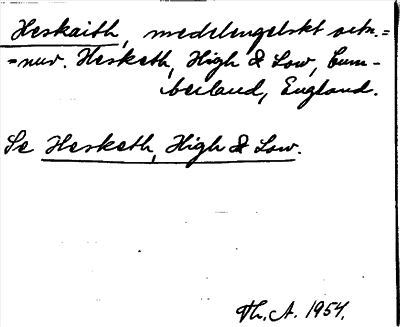 Heskaith, medelengelskt ortn.=
=nuv. Hesketh, High & Low, Cum-
berland, England.
Se Hesketh, High & Low.
Th. A. 1954.